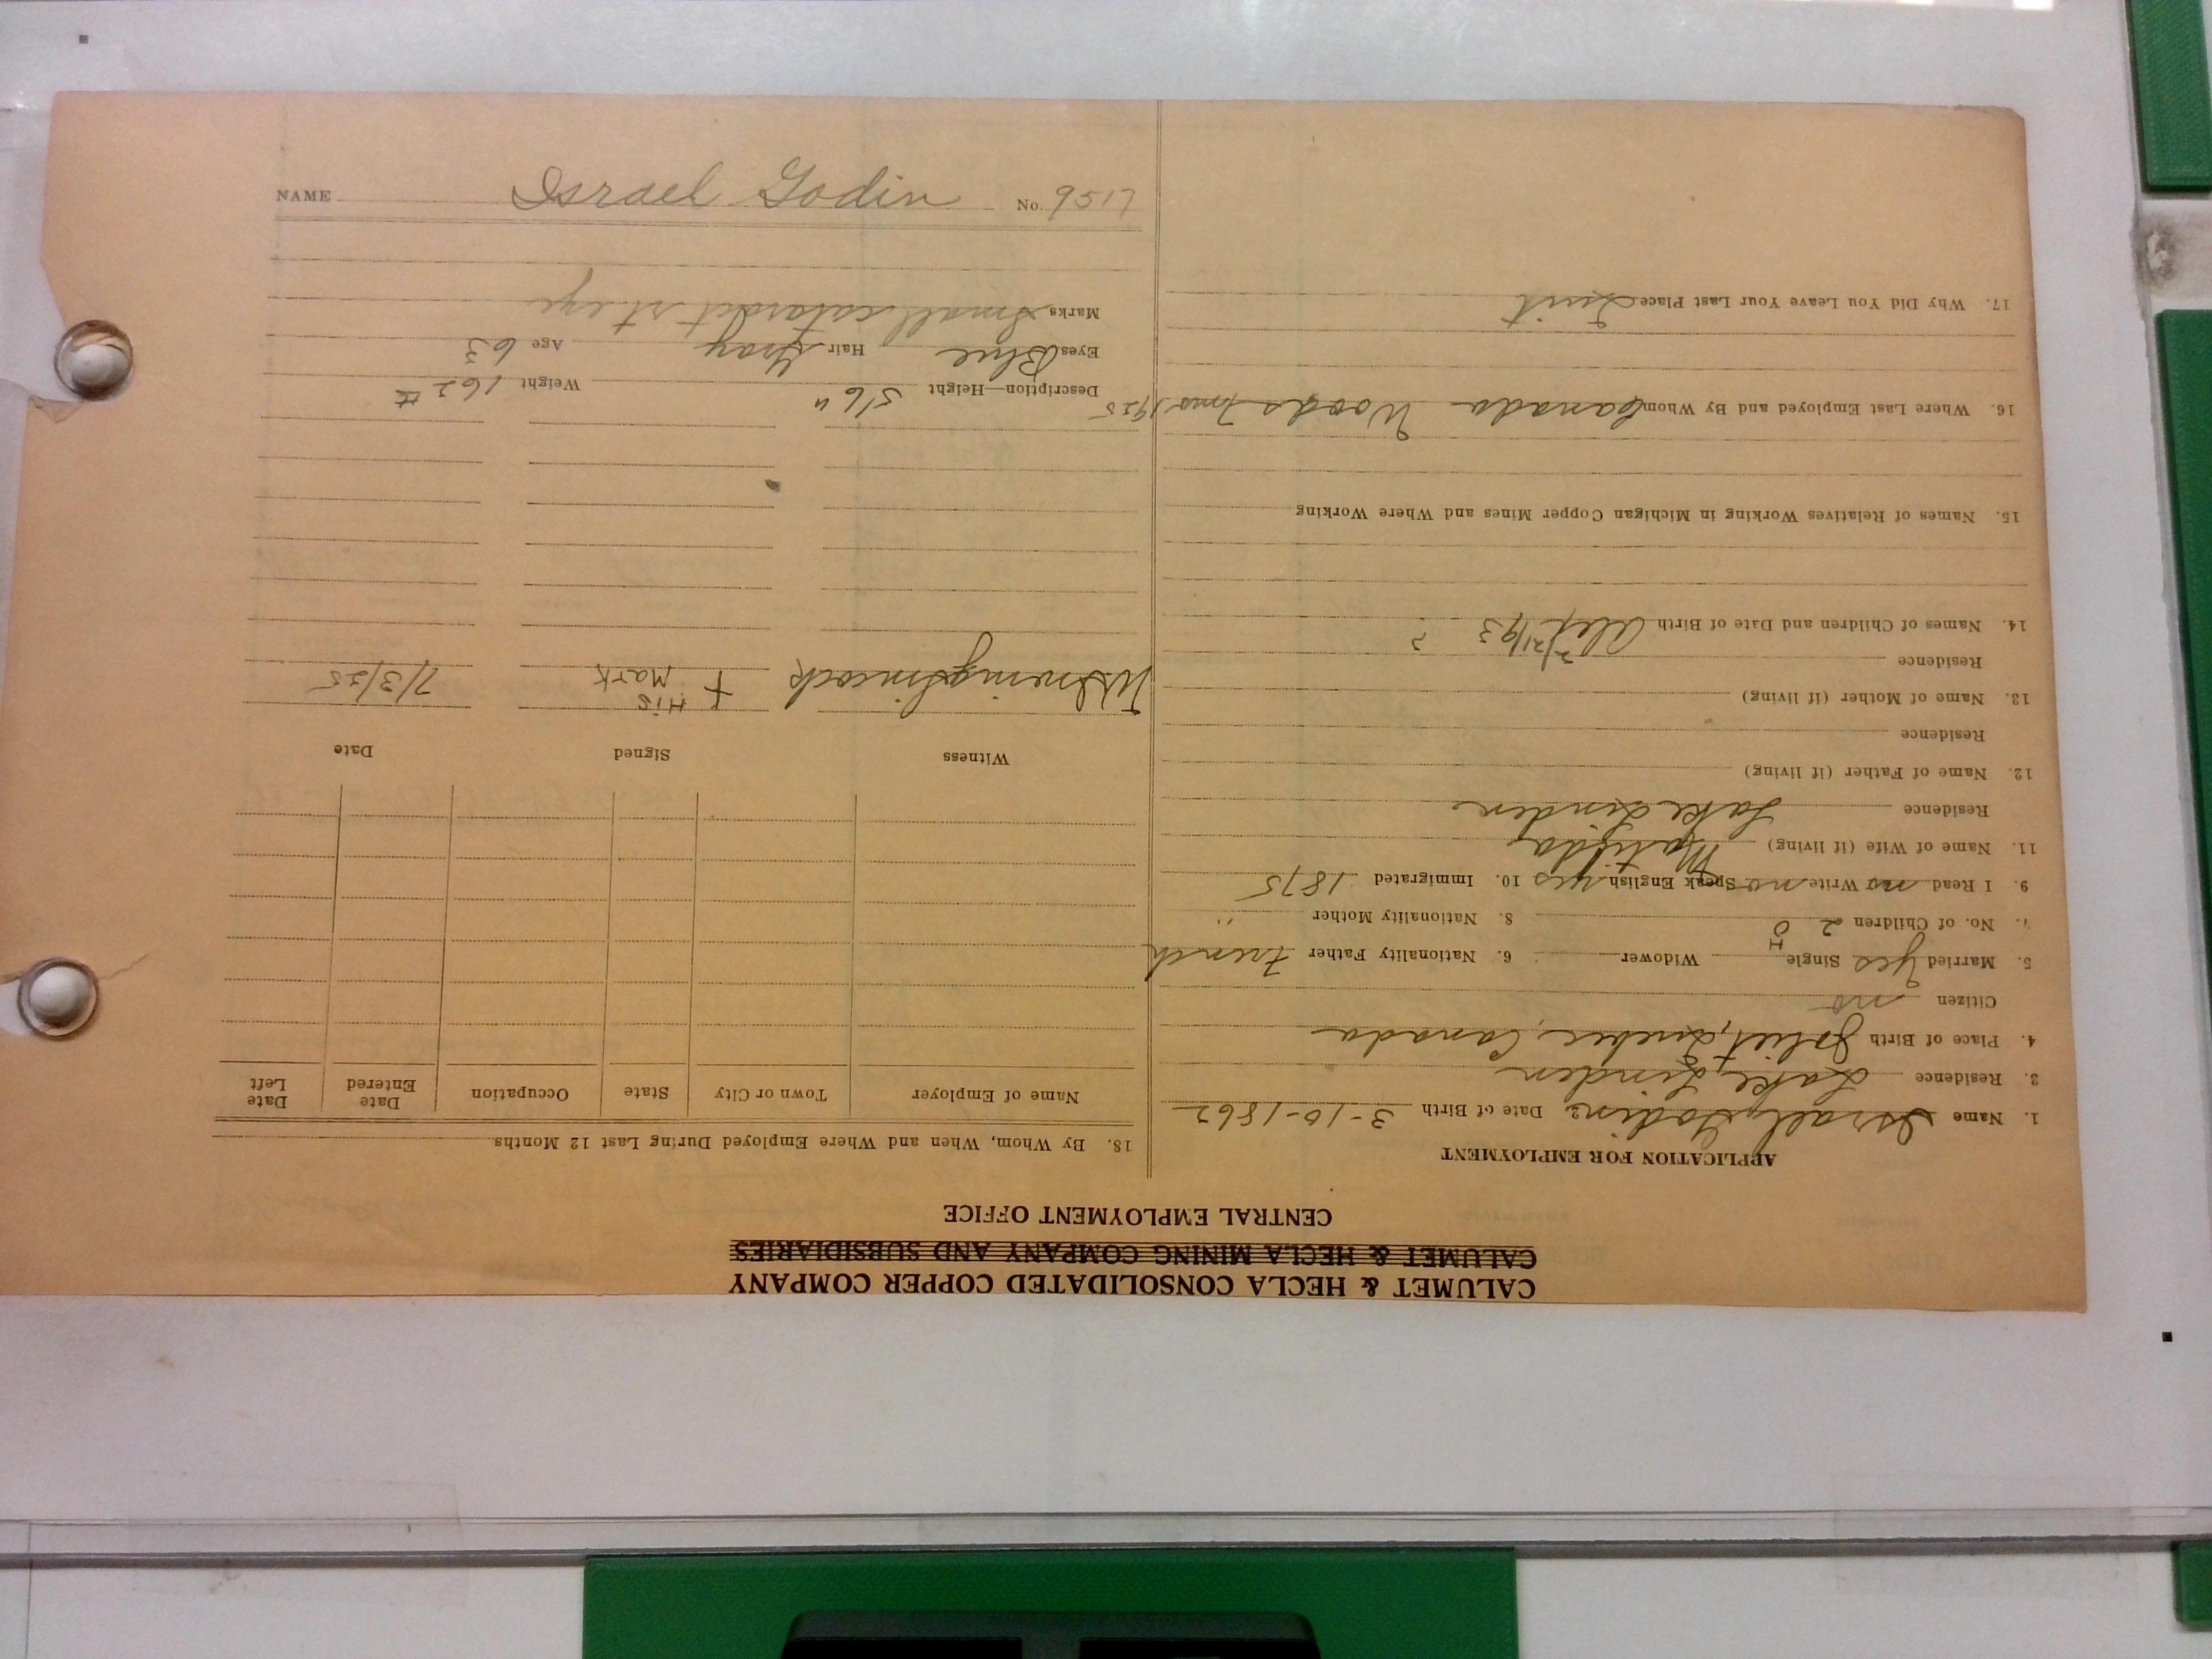 CALUMET & HECLA CONSOLIDATED COPPER COMPANY
CALUMET & HECLA MINING COMPANY AND SUBSIDIARIES
CENTRAL EMPLOYMENT OFFICE
APPLICATION FOR EMPLOYMENT
1. Name Israel Godin 2. Date of Birth 3-10-1862
3. Residence Lake Linden
4. Place of Birth Joliet, Quebec, Canada
Citizen no
5. Married yes Single Widower 6. Nationality Father French
7. No. of Children 2 8. Nationality Mother "
9. I Read no Write no Speak English yes 10. Immigrated 1875
11. Name of Wife (if living) Matilda
Residence Lake Linden
12. Name of Father (if living)
Residence
13. Name of Mother (if living)
Residence
14. Names of Children and Date of Birth Alex ?
15. Names of Relatives Working in Michigan Copper Mines and Where Working
16. Where Last Employed and By Whom Canada Woods 1925
17. Why Did You Leave Your Last Place Quit
18. By Whom, When and Where Employed During Last 12 Months
Name of Employer Town or City State Occupation Date Entered Date Left
Witness Signed Date
His + Mark 7/3/25
Description—Height 5'6" Weight 162 #
Eyes Blue Hair Gray Age 63
Marks Small cataract rt eye
NAME Israel Godin No. 9517